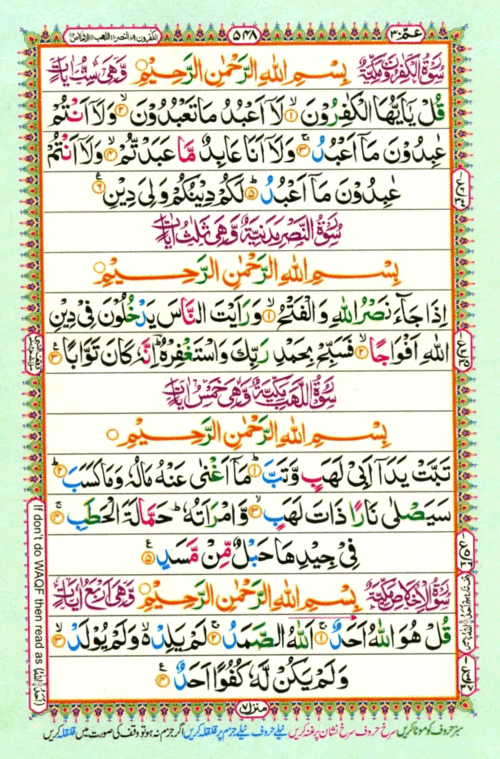 عمّ ٣٠ ٥٤٨ الكفرون ١٠٩ النصر ١١٠ اللهب ١١١ الاخلاص ١١٢
سُوْرَةُ الْكٰفِرُوْنَ مَكِّيَّةٌ بِسْمِ اللهِ الرَّحْمٰنِ الرَّحِيْمِ وَّهِىَ سِتُّ اٰيَاتٍ
قُلْ يٰۤاَيُّهَا الْكٰفِرُوْنَ ۙ﴿۱﴾ لَاۤ اَعْبُدُ مَا تَعْبُدُوْنَ ۙ﴿۲﴾ وَلَاۤ اَنْتُمْ
عٰبِدُوْنَ مَاۤ اَعْبُدُ ۚ﴿۳﴾ وَلَاۤ اَنَا عَابِدٌ مَّا عَبَدْتُّمْ ۙ﴿۴﴾ وَلَاۤ اَنْتُمْ
عٰبِدُوْنَ مَاۤ اَعْبُدُ ؕ﴿۵﴾ لَكُمْ دِيْنُكُمْ وَلِىَ دِيْنِ ﴿۶﴾
سُوْرَةُ النَّصْرِ مَدَنِيَّةٌ وَّهِىَ ثَلٰثُ اٰيَاتٍ
بِسْمِ اللهِ الرَّحْمٰنِ الرَّحِيْمِ
اِذَا جَآءَ نَصْرُ اللهِ وَالْفَتْحُ ۙ﴿۱﴾ وَرَاَيْتَ النَّاسَ يَدْخُلُوْنَ فِىْ دِيْنِ
اللهِ اَفْوَاجًا ۙ﴿۲﴾ فَسَبِّحْ بِحَمْدِ رَبِّكَ وَاسْتَغْفِرْهُ ؕ اِنَّهٗ كَانَ تَوَّابًا ﴿۳﴾
سُوْرَةُ اللَّهَبِ مَكِّيَّةٌ وَّهِىَ خَمْسُ اٰيَاتٍ
بِسْمِ اللهِ الرَّحْمٰنِ الرَّحِيْمِ
تَبَّتْ يَدَاۤ اَبِىْ لَهَبٍ وَّتَبَّ ؕ﴿۱﴾ مَاۤ اَغْنٰى عَنْهُ مَالُهٗ وَمَا كَسَبَ ؕ﴿۲﴾
سَيَصْلٰى نَارًا ذَاتَ لَهَبٍ ۚۖ﴿۳﴾ وَّامْرَاَتُهٗ ؕ حَمَّالَةَ الْحَطَبِ ۚ﴿۴﴾
فِىْ جِيْدِهَا حَبْلٌ مِّنْ مَّسَدٍ ﴿۵﴾
سُوْرَةُ الْاِخْلَاصِ مَكِّيَّةٌ بِسْمِ اللهِ الرَّحْمٰنِ الرَّحِيْمِ وَّهِىَ اَرْبَعُ اٰيَاتٍ
قُلْ هُوَ اللهُ اَحَدٌ ۚ﴿۱﴾ اَللهُ الصَّمَدُ ۚ﴿۲﴾ لَمْ يَلِدْ ۙ وَلَمْ يُوْلَدْ ۙ﴿۳﴾
وَلَمْ يَكُنْ لَّهٗ كُفُوًا اَحَدٌ ﴿۴﴾
If don't do WAQF then read as
منزل ٧
سبز حروف کو موٹا کریں سرخ حروف سرخ نشان پر غنہ کریں نیلے حروف نیلے جزم پر قلقلہ کریں اگر جزم نہ ہو تو وقف کی صورت میں قلقلہ کریں